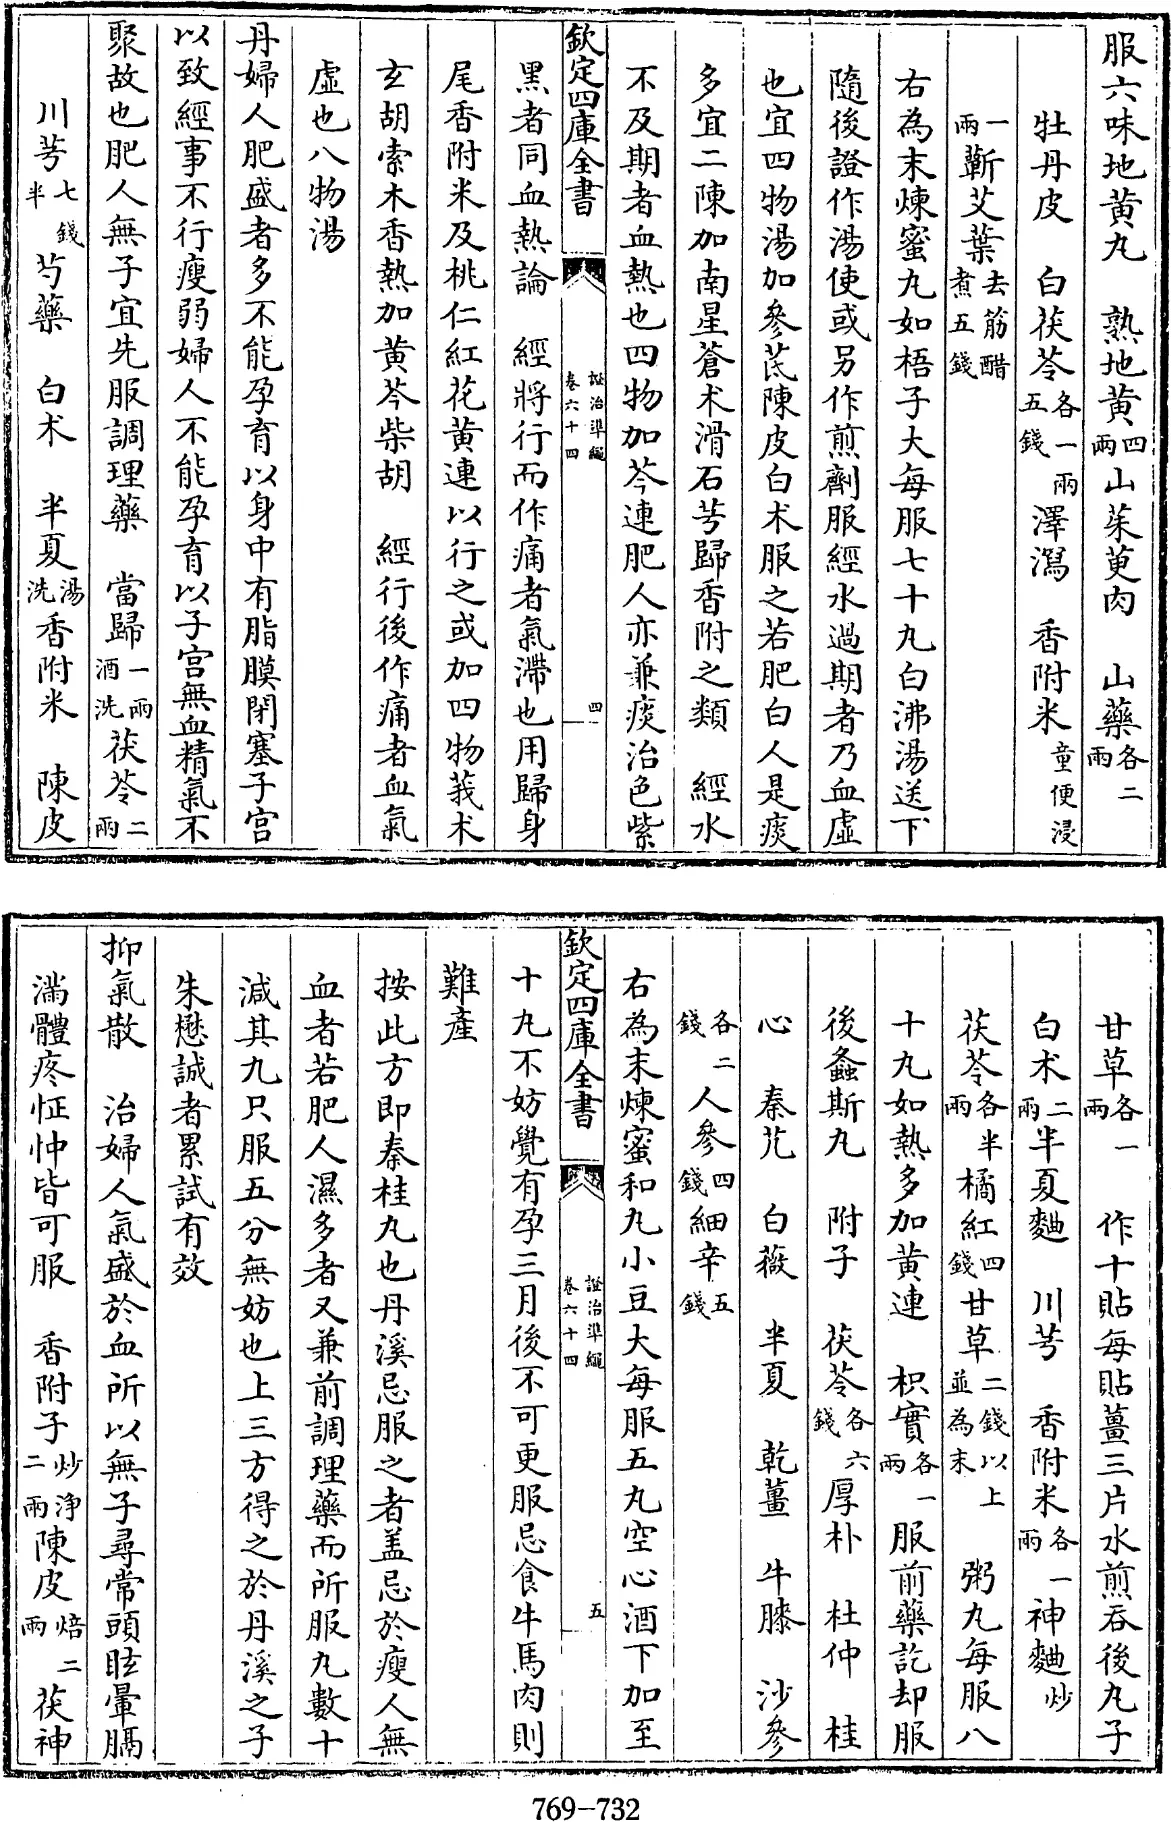 服六味地黄丸 熟地黄四兩山茱萸肉 山藥各二兩
牡丹皮 白茯苓各一兩五錢澤瀉 香附米童便浸
一兩蘄艾葉去筋醋煮五錢
右為末煉蜜丸如梧子大每服七十丸白沸湯送下
隨後證作湯使或另作煎劑服經水過期者乃血虛
也宜四物湯加參芪陳皮白术服之若肥白人是痰
多宜二陳加南星蒼术滑石芎歸香附之類 經水
不及期者血熱也四物加芩連肥人亦兼痰治色紫
欽定四庫全書 證治準繩卷六十四 四
黑者同血熱論 經將行而作痛者氣滯也用歸身
尾香附米及桃仁紅花黄連以行之或加四物莪术
玄胡索木香熱加黄芩柴胡 經行後作痛者血氣
虛也八物湯
丹婦人肥盛者多不能孕育以身中有脂膜閉塞子宫
以致經事不行瘦弱婦人不能孕育以子宫無血精氣不
聚故也肥人無子宜先服調理藥 當歸一兩酒洗茯苓二兩
川芎七錢半 芍藥 白术 半夏湯洗香附米 陳皮
甘草各一兩 作十貼每貼薑三片水煎吞後丸子
白术二兩半夏麯 川芎 香附米各一兩神麯炒
茯苓各半兩橘紅四錢甘草二錢以上並為末 粥丸每服八
十丸如熱多加黄連 枳實各一兩服前藥訖却服
後螽斯丸 附子 茯苓各六錢厚朴 杜仲 桂
心 秦艽 白薇 半夏 乾薑 牛膝 沙參
各二錢人參四錢細辛五錢
右為末煉蜜和丸小豆大每服五丸空心酒下加至
欽定四庫全書 證治準繩卷六十四 五
十丸不妨覺有孕三月後不可更服忌食牛馬肉則
難産
按此方即秦桂丸也丹溪忌服之者盖忌於瘦人無
血者若肥人濕多者又兼前調理藥而所服丸數十
減其九只服五分無妨也上三方得之於丹溪之子
朱懋誠者累試有效
抑氣散 治婦人氣盛於血所以無子尋常頭眩暈膈
滿體疼怔忡皆可服 香附子炒淨二兩陳皮焙二兩茯神
769-732